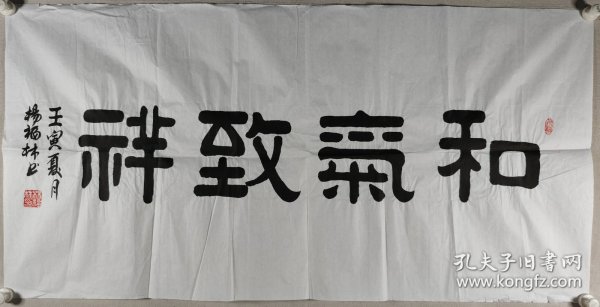 和氣致祥
壬寅夏月
楊福林书
孔夫子旧书网
www.kongfz.com